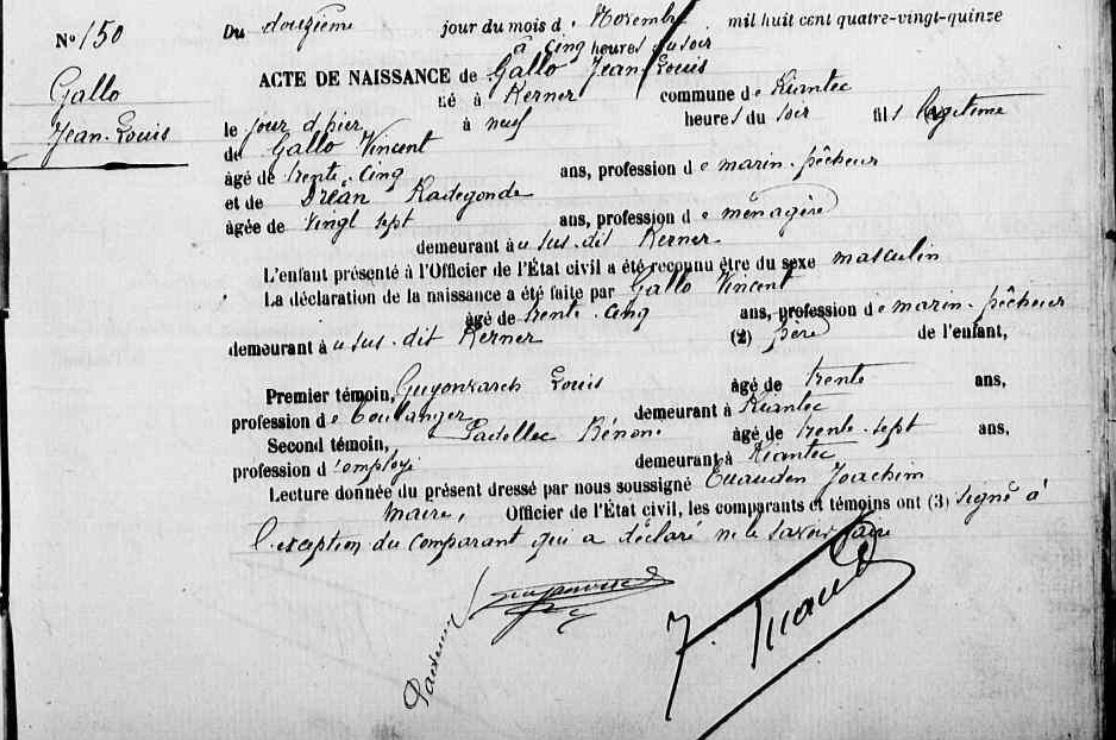 N° 150
Gallo
Jean-Louis
Du douzième jour du mois de Novembre mil huit cent quatre-vingt-quinze
à cinq heures du soir
ACTE DE NAISSANCE de Gallo Jean-Louis
né à Kerner commune de Riantec
le jour d'hier à neuf heures du soir fils légitime
de Gallo Vincent
âgé de trente-cinq ans, profession de marin-pêcheur
et de Dréan Radegonde
âgée de vingt sept ans, profession de ménagère
demeurant au sus-dit Kerner
L'enfant présenté à l'Officier de l'État civil a été reconnu être du sexe masculin
La déclaration de la naissance a été faite par Gallo Vincent
âgé de trente-cinq ans, profession de marin-pêcheur
demeurant au sus-dit Kerner (2) père de l'enfant,
Premier témoin, Guyonvarch Louis âgé de trente ans,
profession de boulanger demeurant à Riantec
Second témoin, Padellec Bénoni âgé de trente-sept ans,
profession d'employé demeurant à Riantec
Lecture donnée du présent dressé par nous soussigné Joachim
Maire, Officier de l'État civil, les comparants et témoins ont (3) signé à
l'exception du comparant qui a déclaré ne le savoir faire